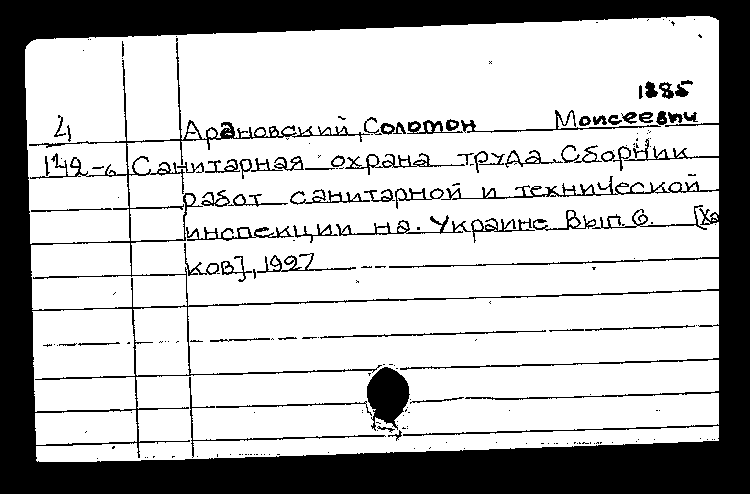 1885
4 Арановский, Соломон Моисеевич
142-6 Санитарная охрана труда. Сборник
работ санитарной и технической
инспекции на. Украине Вып. 6. [Ха
ков], 1927